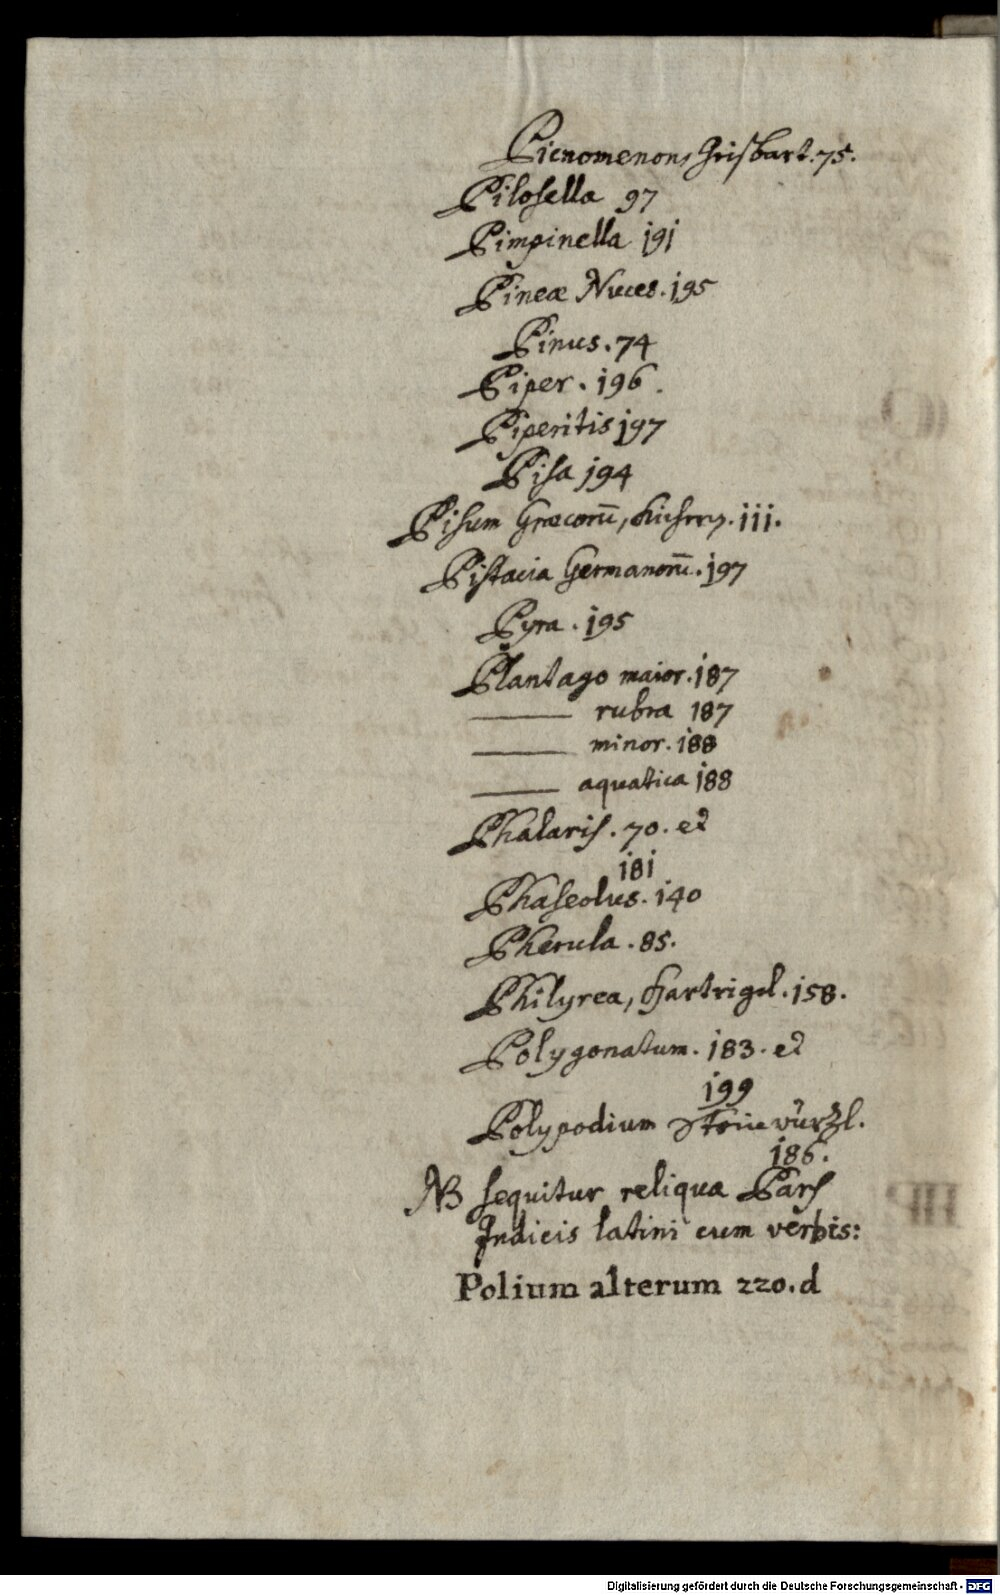 Picnomenon, Grisbart. 75.
Pilosella 97
Pimpinella 191
Pineæ Nuces. 195
Pinus. 74
Piper. 196.
Piperitis 197
Pisa 194
Pisum Græcorū, 111.
Pistacia Germanorū. 197
Pyra. 195
Plantago maior. 187
——— rubra 187
——— minor. 188
——— aquatica 188
Phalaris. 70. et
181
Phaseolus. 140
Pherula. 85.
Philyrea, Hartrigel. 158.
Polygonatum. 183. et
199
Polypodium Steinwürzl.
186.
NB sequitur reliqua Pars
Indicis latini cum verbis:
Polium alterum 220.d
Digitalisierung gefördert durch die Deutsche Forschungsgemeinschaft - DFG